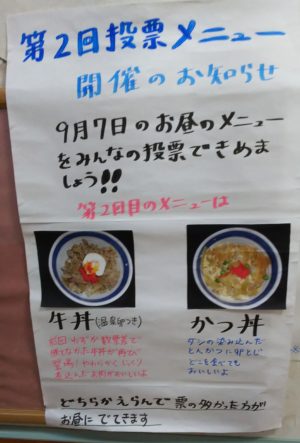 第2回投票メニュー
開催のお知らせ
9月7日のお昼のメニュー
をみんなの投票できめま
しょう!!
第2回目のメニューは
牛丼(温泉卵つき)
かつ丼
前回わずか数票差で
選ばれなかった牛丼が再び
登場!やわらかくじっくり
煮込んだお肉がおいしいよ
ダシの染み込んだ
とんかつに卵とじ
どこを食べても
おいしいよ
どちらかえらんで票の多かった方が
お昼にでてきます